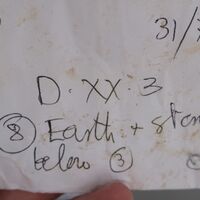 31/
D. XX. 3
⑧ Earth + ston
below ③